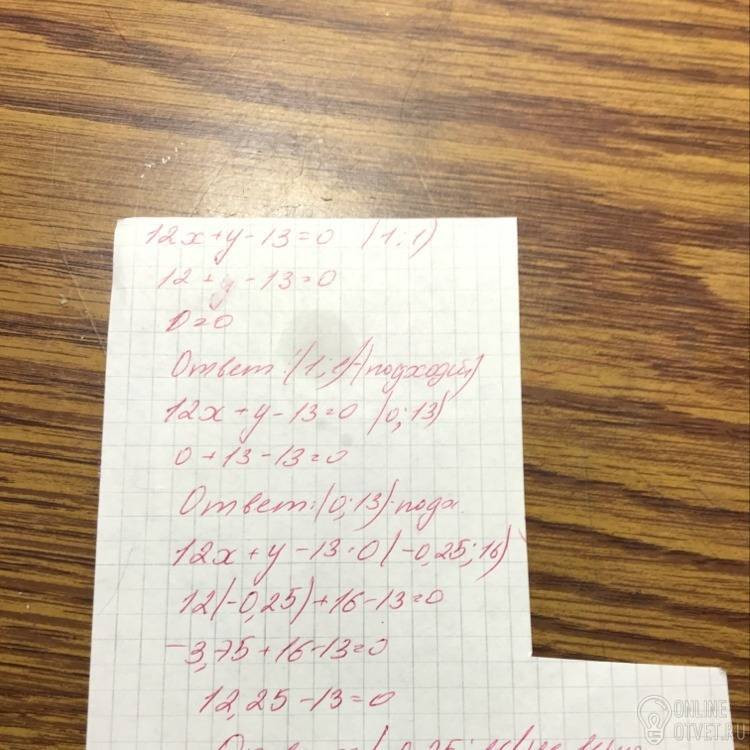 12x+y-13=0 (1;1)
12+y-13=0
0=0
Ответ:(1;1)-(подходит)
12x+y-13=0 (0;13)
0+13-13=0
Ответ:(0;13)-подх.
12x+y-13=0 (-0,25;16)
12(-0,25)+16-13=0
-3,75+16-13=0
12,25-13=0
ONLINE
OTVET.RU